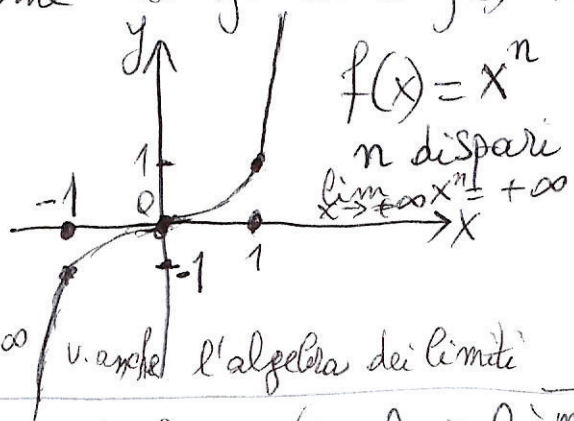 y
f(x) = xⁿ
n dispari
lim x→+∞ xⁿ = +∞
1
-1
0
1
x
-1
∞
v. anche l'algebra dei limiti